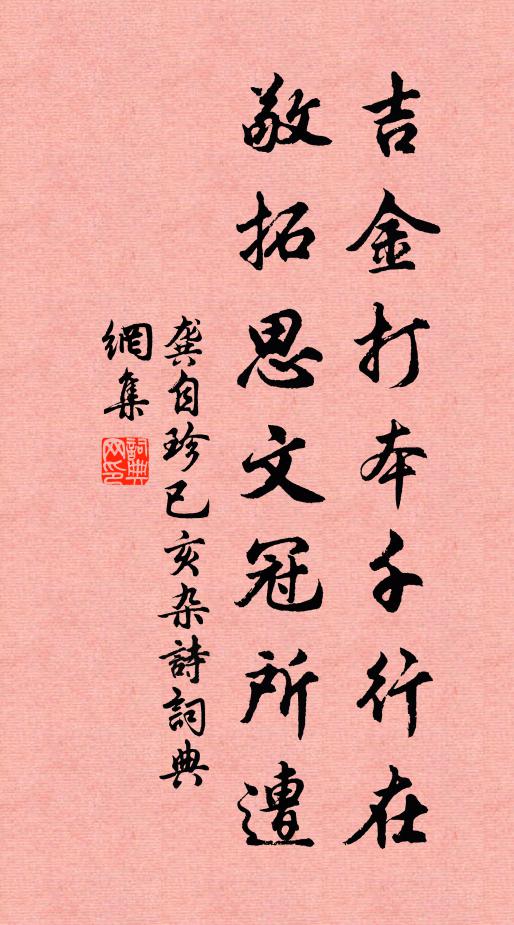 吉金打本千行在
敬拓思文冠所遭
龔自珍己亥杂詩詞典
網集
詞典
网印